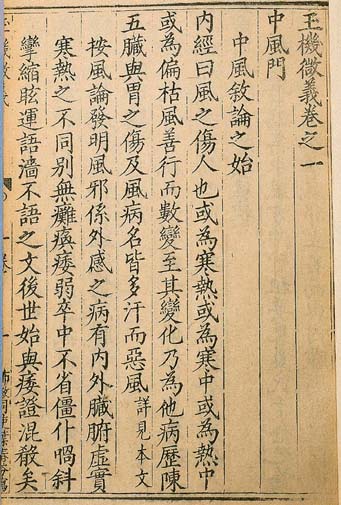 玉機微義卷之一
中風門
中風敘論之始
內經曰風之傷人也或為寒熱或為寒中或為熱中
或為偏枯風善行而數變至其變化乃為他病歷陳
五臟與胃之傷及風病名皆多汗而惡風詳見本文
按風論發明風邪係外感之病有內外臟腑虛實
寒熱之不同別無癱瘓痿弱卒中不省僵仆喎斜
攣縮眩運語濇不語之文後世始與痿證混殽矣